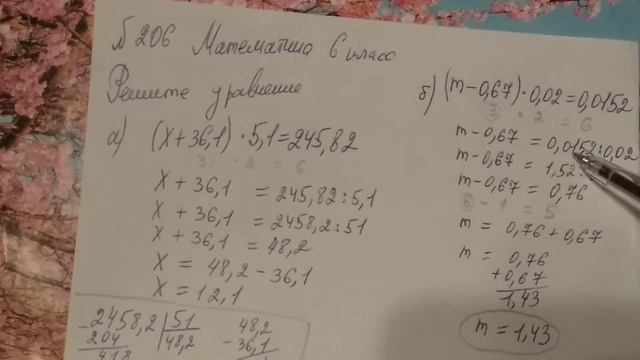 № 206 Математика 6 класс
Решите уравнение
а) (x+36,1)·5,1=245,82
3 · 2 = 6
x+36,1 = 245,82:5,1
x+36,1 = 2458,2:51
x+36,1 = 48,2
x = 48,2-36,1
x = 12,1
2458,2 51
- 204 48,2
418
48,2
- 36,1
б) (m-0,67)·0,02=0,0152
3 · 2 = 6
m-0,67 = 0,0152:0,02
m-0,67 = 1,52:
m-0,67 = 0,76
6 - 1 = 5
m = 0,76+0,67
m = 0,76
+0,67
1,43
m = 1,43